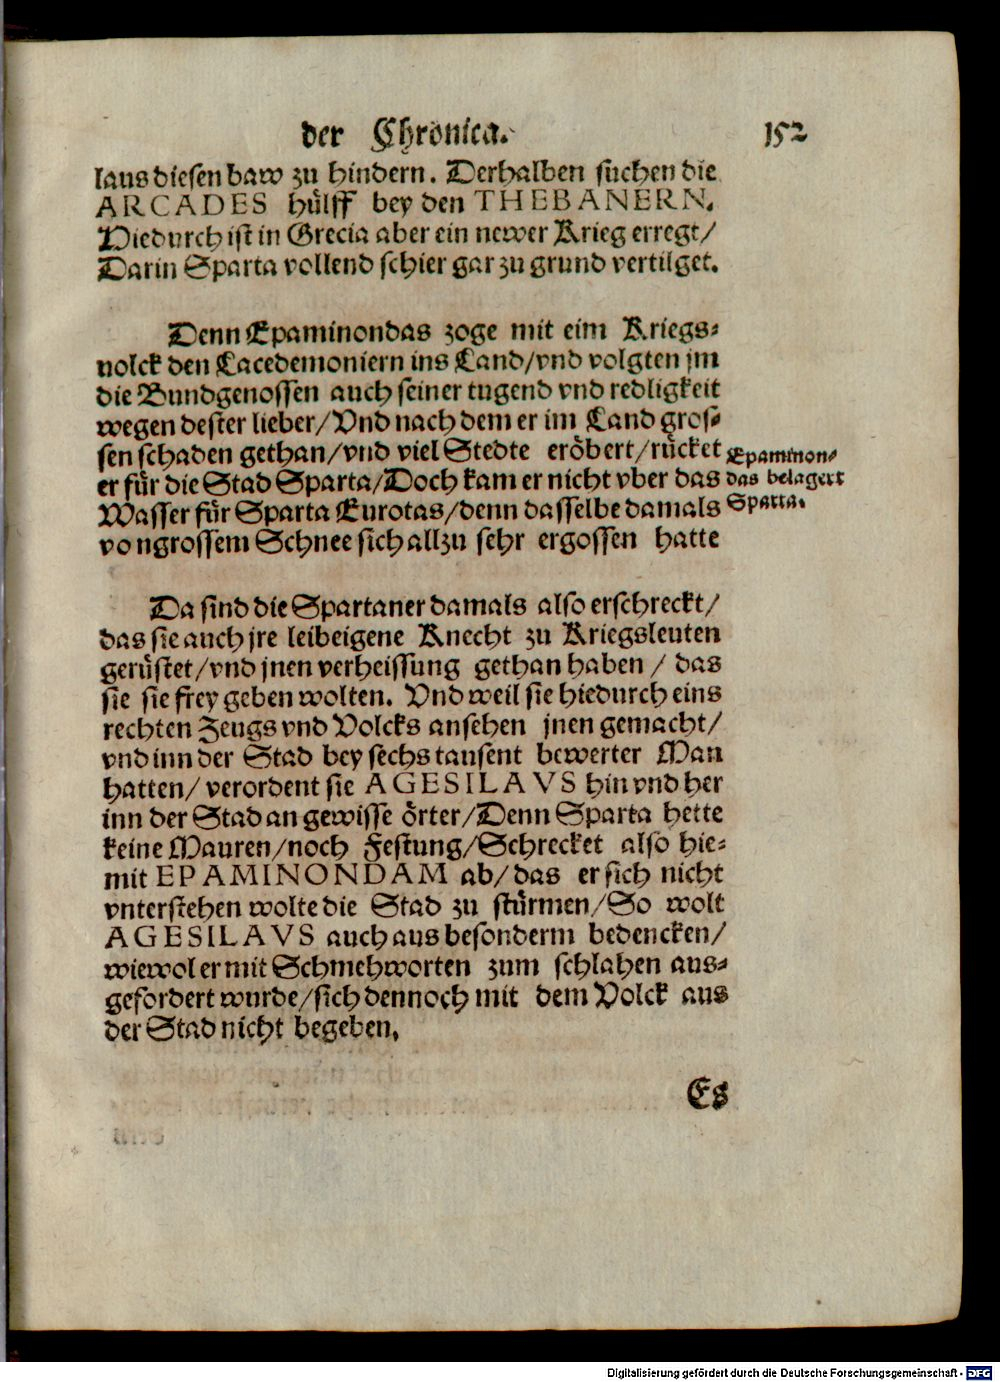 der Chronica. 152
laus diesen baw zu hindern. Derhalben suchen die
ARCADES hülff bey den THEBANERN.
Hiedurch ist in Grecia aber ein newer Krieg erregt/
Darin Sparta vollend schier gar zu grund vertilget.
Denn Epaminondas zoge mit eim Kriegs-
volck den Lacedemoniern ins Land/vnd volgten jm
die Bundgenossen auch seiner tugend vnd redligkeit
wegen dester lieber/Vnd nach dem er im Land gros-
sen schaden gethan/vnd viel Stedte eröbert/rücket
er für die Stad Sparta/Doch kam er nicht vber das
Wasser für Sparta Eurotas/denn dasselbe damals
vo ngrossem Schnee sich allzu sehr ergossen hatte
Epaminon-
das belagert
Sparta.
Da sind die Spartaner damals also erschreckt/
das sie auch jre leibeigene Knecht zu Kriegsleuten
gerüstet/vnd jnen verheissung gethan haben/ das
sie sie frey geben wolten. Vnd weil sie hiedurch eins
rechten Zeugs vnd Volcks ansehen jnen gemacht/
vnd inn der Stad bey sechs tausent bewerter Man
hatten/ verordent sie AGESILAVS hin vnd her
inn der Stad an gewisse örter/Denn Sparta hette
keine Mauren/noch Festung/Schrecket also hie-
mit EPAMINONDAM ab/das er sich nicht
vnterstehen wolte die Stad zu stürmen/So wolt
AGESILAVS auch aus besonderm bedencken/
wiewol er mit Schmehworten zum schlahen aus-
gefordert wurde/sich dennoch mit dem Volck aus
der Stad nicht begeben.
Es
Digitalisierung gefördert durch die Deutsche Forschungsgemeinschaft - DFG